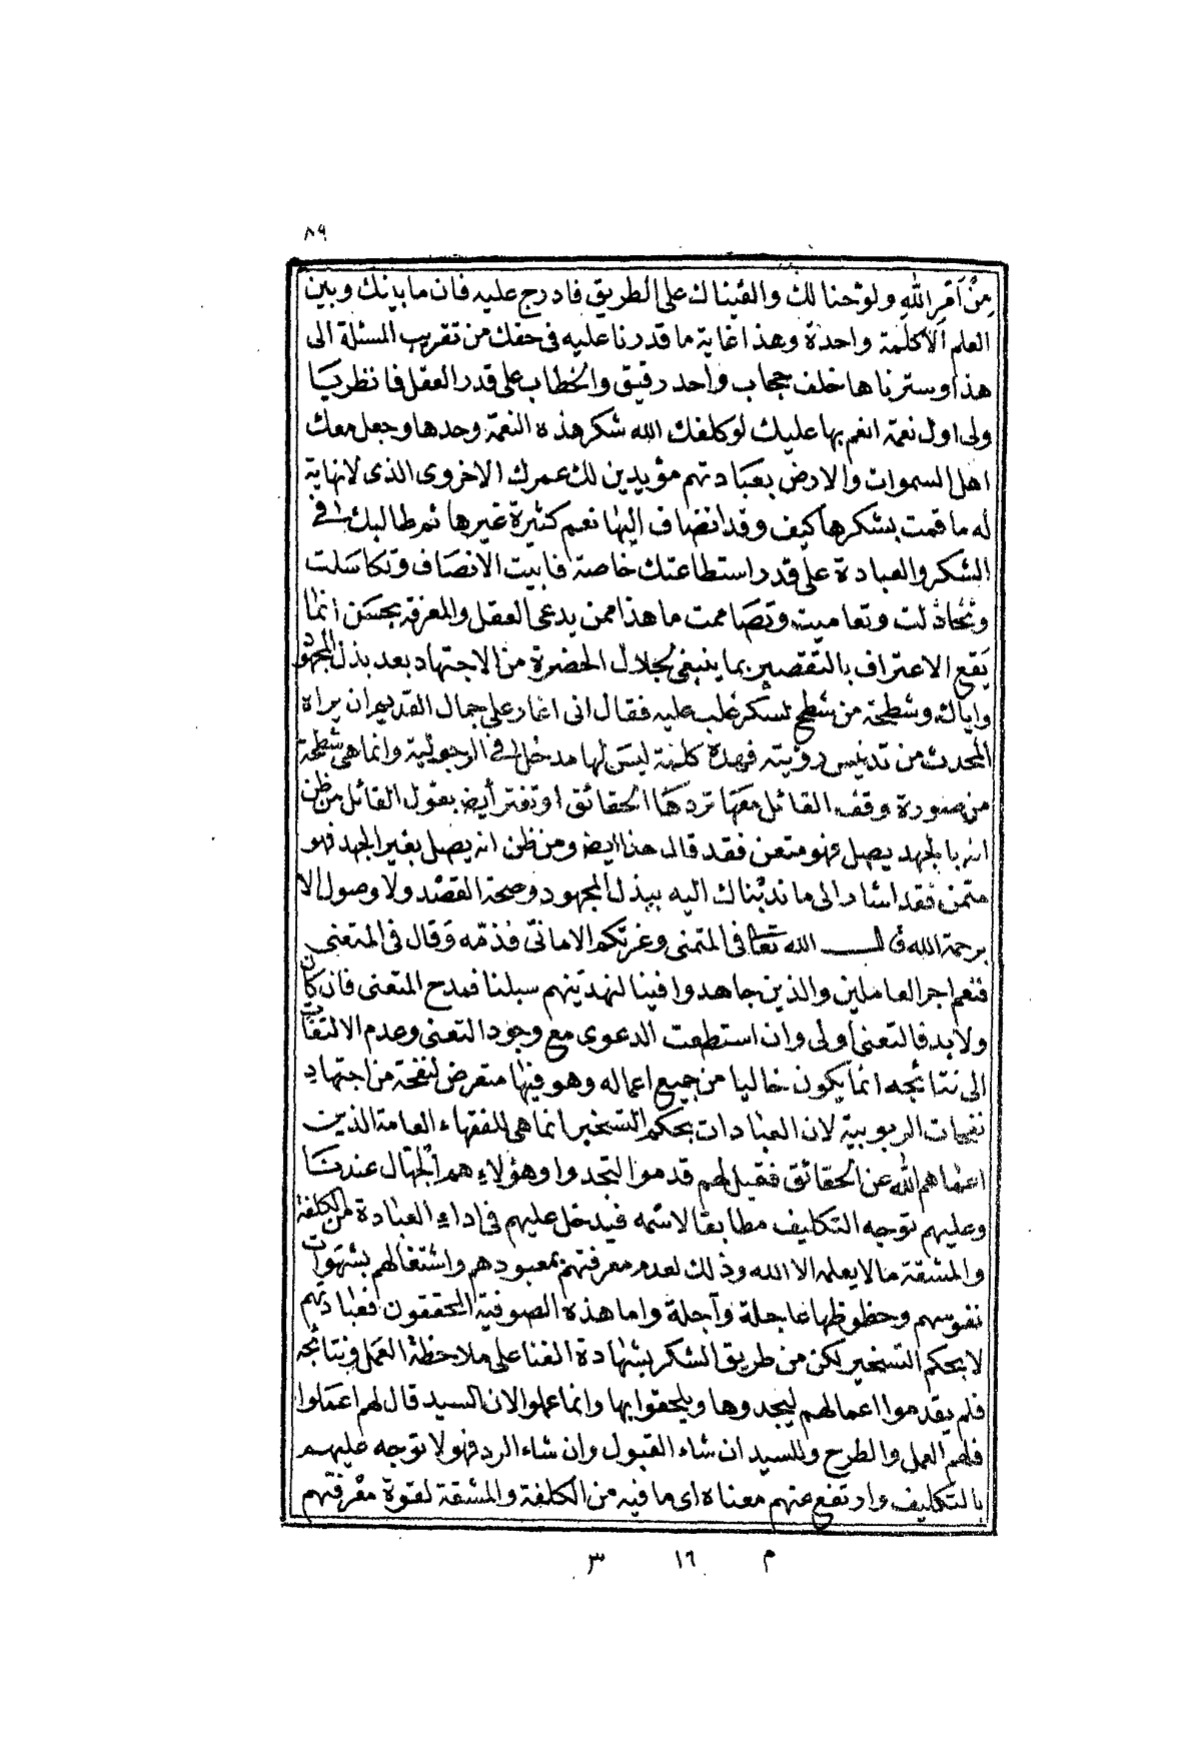 ٨٩
من اقر الله ولوّحنا لك والقيناك على الطريق فادرج عليه فان ما بينك وبين
العلم الا كلمة واحدة وهذا غاية ما قدرنا عليه فى حقك من تقريب المسئلة الى
هذا وسترناها خلف حجاب واحد رقيق والخطاب على قدر العقل فانظر يا
ولى اول نعمة انعم بها عليك لو كلفك الله شكر هذه النعمة وحدها وجعل معك
اهل السموات والارض بعبادتهم مؤيدين لك عمرك الاخروى الذى لا نهاية
له ما قمت بشكرها كيف وقد انضاف اليها نعم كثيرة غيرها ثم طالبك فى
الشكر والعبادة على قدر استطاعتك خاصة فابيت الانصاف وتكاسلت
وتخاذلت وتعاميت وتصاممت ما هذا ممن يدعى العقل والمعرفة بحسن انما
يقع الاعتراف بالتقصير بما ينبغى لجلال الحضرة من الاجتهاد بعد بذل المجهود
واياك وشطحة من شطح لسكر غلب عليه فقال انى اغار على جمال القديم ان يراه
المحدث من تدنيس رؤيته فهذه كلمة ليس لها مدخل فى الرجولية وانما هى شطحة
من صورة وقف القائل معها تردها الحقائق او تفتر أيض بقول القائل من ظن
انه بالجهد يصل فهو متعن فقد قال هذا ايضا ومن ظن انه يصل بغير الجهد فهو
متمن فقد اشار الى ما ندبناك اليه ببذل المجهود وصحة القصد ولا وصول الا
برحمة الله قال الله تعالى فى المتمنى وغرتكم الامانى فذمّه وقال فى المتعنى
فنعم اجر العاملين والذين جاهدوا فينا لنهدينهم سبلنا فمدح المتعنى فان كان
ولا بد فالتعنى أولى وان استطعت الدعوى مع وجود التعنى وعدم الالتفات
الى نتائجه انما يكون خاليا من جميع اعماله وهو فيها متعرض لنفحة من اجتهاد
نفحات الربوبية لان العبادات بحكم التسخير انما هى للفقهاء العامة الذين
اعماهم الله عن الحقائق فقيل لهم قدموا لتجدوا وهؤلاء هم الجهال عندنا
وعليهم توجه التكليف مطابقا لاسمه فيدخل عليهم فى اداء العبادة من الكلفة
والمشقة ما لا يعلمه الا الله وذلك لعدم معرفتهم بمعبودهم واشتغالهم بشهوات
نفوسهم وحظوظها عاجلة وآجلة واما هذه الصوفية المحققون فعبادتهم
لا بحكم التسخير لكن من طريق الشكر بشهادة الفنا على ملاحظة العمل ونتائجه
فلم يقدموا اعمالهم ليجدوها ويلحقوا بها وانما عملوا لان السيد قال لهم اعملوا
فلهم العمل والطرح وللسيد ان شاء القبول وان شاء الرد فهولا توجه عليهم
بالتكليف وارتفع عنهم معناه اى ما فيه من الكلفة والمشقة لقوة معرفتهم
م ١٦ س